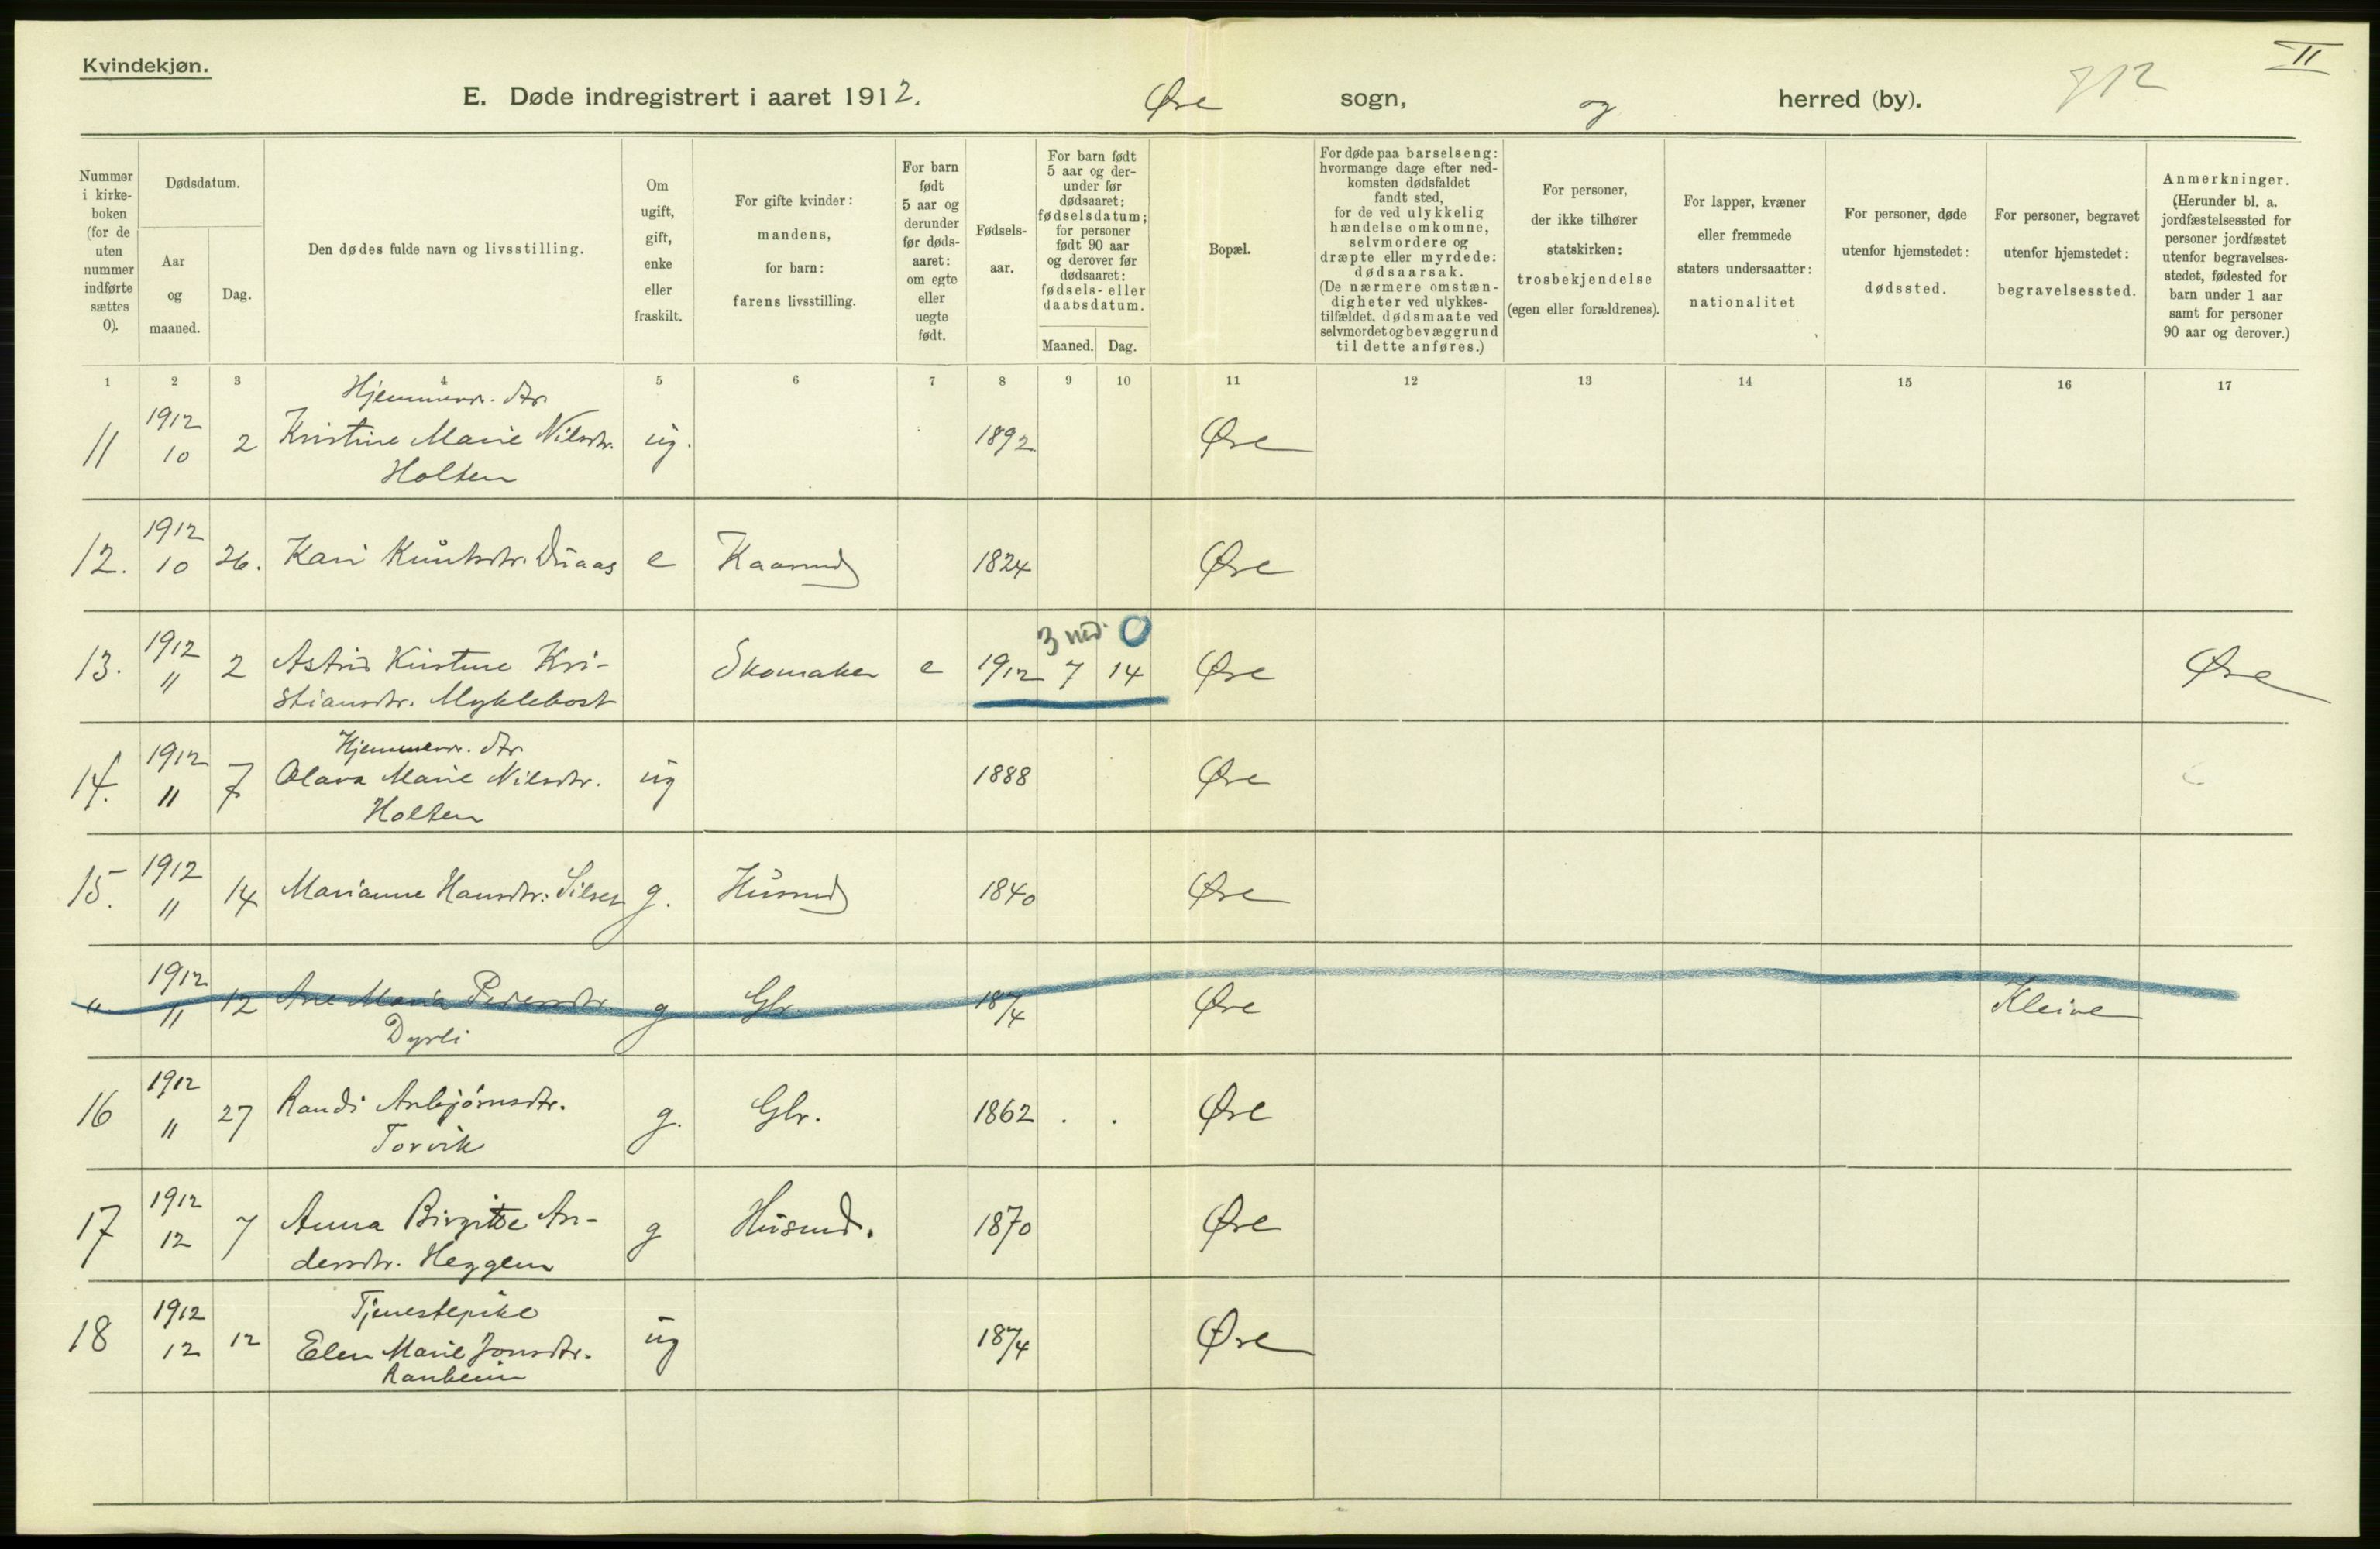 Kvindekjøn.
II
712
E. Døde indregistrert i aaret 1912. Øre sogn, og herred (by).
Nummer i kirkeboken (for de uten nummer indførte sættes 0).
Dødsdatum.
Aar og maaned.
Dag.
Den dødes fulde navn og livsstilling.
Om ugift, gift, enke eller fraskilt.
For gifte kvinder: mandens, for barn: farens livsstilling.
For barn født 5 aar og derunder før døds-aaret: om egte eller uegte født.
Fødsels-aar.
For barn født 5 aar og der-under før dødsaaret: fødselsdatum; for personer født 90 aar og derover før dødsaaret: fødsels- eller daabsdatum.
Maaned. Dag.
Bopæl.
For døde paa barselseng: hvormange dage efter ned-komsten dødsfaldet fandt sted, for de ved ulykkelig hændelse omkomne, selvmordere og dræpte eller myrdede: dødsaarsak. (De nærmere omstæn-digheter ved ulykkes-tilfældet, dødsmaate ved selvmordet og bevæggrund til dette anføres.)
For personer, der ikke tilhører statskirken: trosbekjendelse (egen eller forældrenes).
For lapper, kvæner eller fremmede staters undersaatter: nationalitet
For personer, døde utenfor hjemstedet: dødssted.
For personer, begravet utenfor hjemstedet: begravelsessted.
Anmerkninger. (Herunder bl. a. jordfæstelsessted for personer jordfæstet utenfor begravelses-stedet, fødested for barn under 1 aar samt for personer 90 aar og derover.)
1 2 3 4 5 6 7 8 9 10 11 12 13 14 15 16 17
Hjemmev. dtr.
11 1912 10 2 Kristine Marie Nilsdtr. ug. 1892 Øre
Holten
12. 1912 10 26. Kari Knutsdtr. Duaas e Kaarmd 1824 Øre
3 md. 0
13. 1912 11 2 Astrid Kristine Kri- Skomaker e 1912 7 14 Øre Øre
stiansdtr. Myklebost
Hjemmev. dtr.
14. 1912 11 7 Olava Marie Nilsdtr. ug 1888 Øre
Holten
15. 1912 11 14 Marianne Hansdtr. Silset g. Husmd 1840 Øre
" 1912 11 12 Ane Maria Pedersdtr. g Gbr. 1874 Øre Kleive
Dyrli
16 1912 11 27 Randi Arbjørnsdtr. g. Gbr. 1862 . . Øre
Torvik
17 1912 12 7 Anna Birgitte An- g Husmd. 1870 Øre
dersdtr. Heggem
Tjenestepike
18 1912 12 12 Elen Marie Jonsdtr. ug 1874 Øre
Ranheim